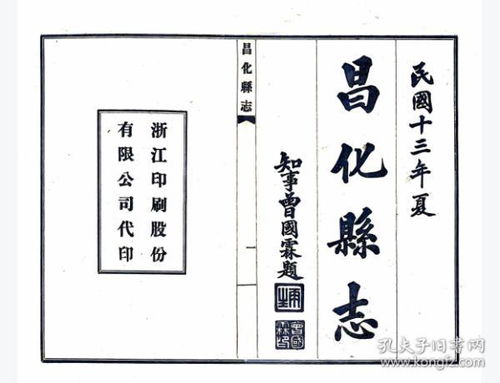 民國十三年夏
昌化縣志
知事曾國霖題
昌化縣志
一
浙江印刷股份
有限公司代印
孔夫子旧书网
www.kongfz.com